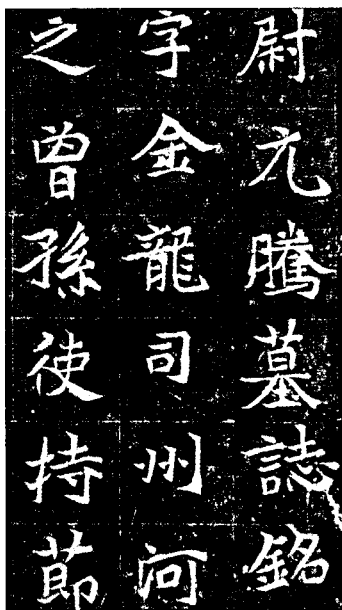 尉元騰墓誌銘
字金龍司州河
之曾孫使持節